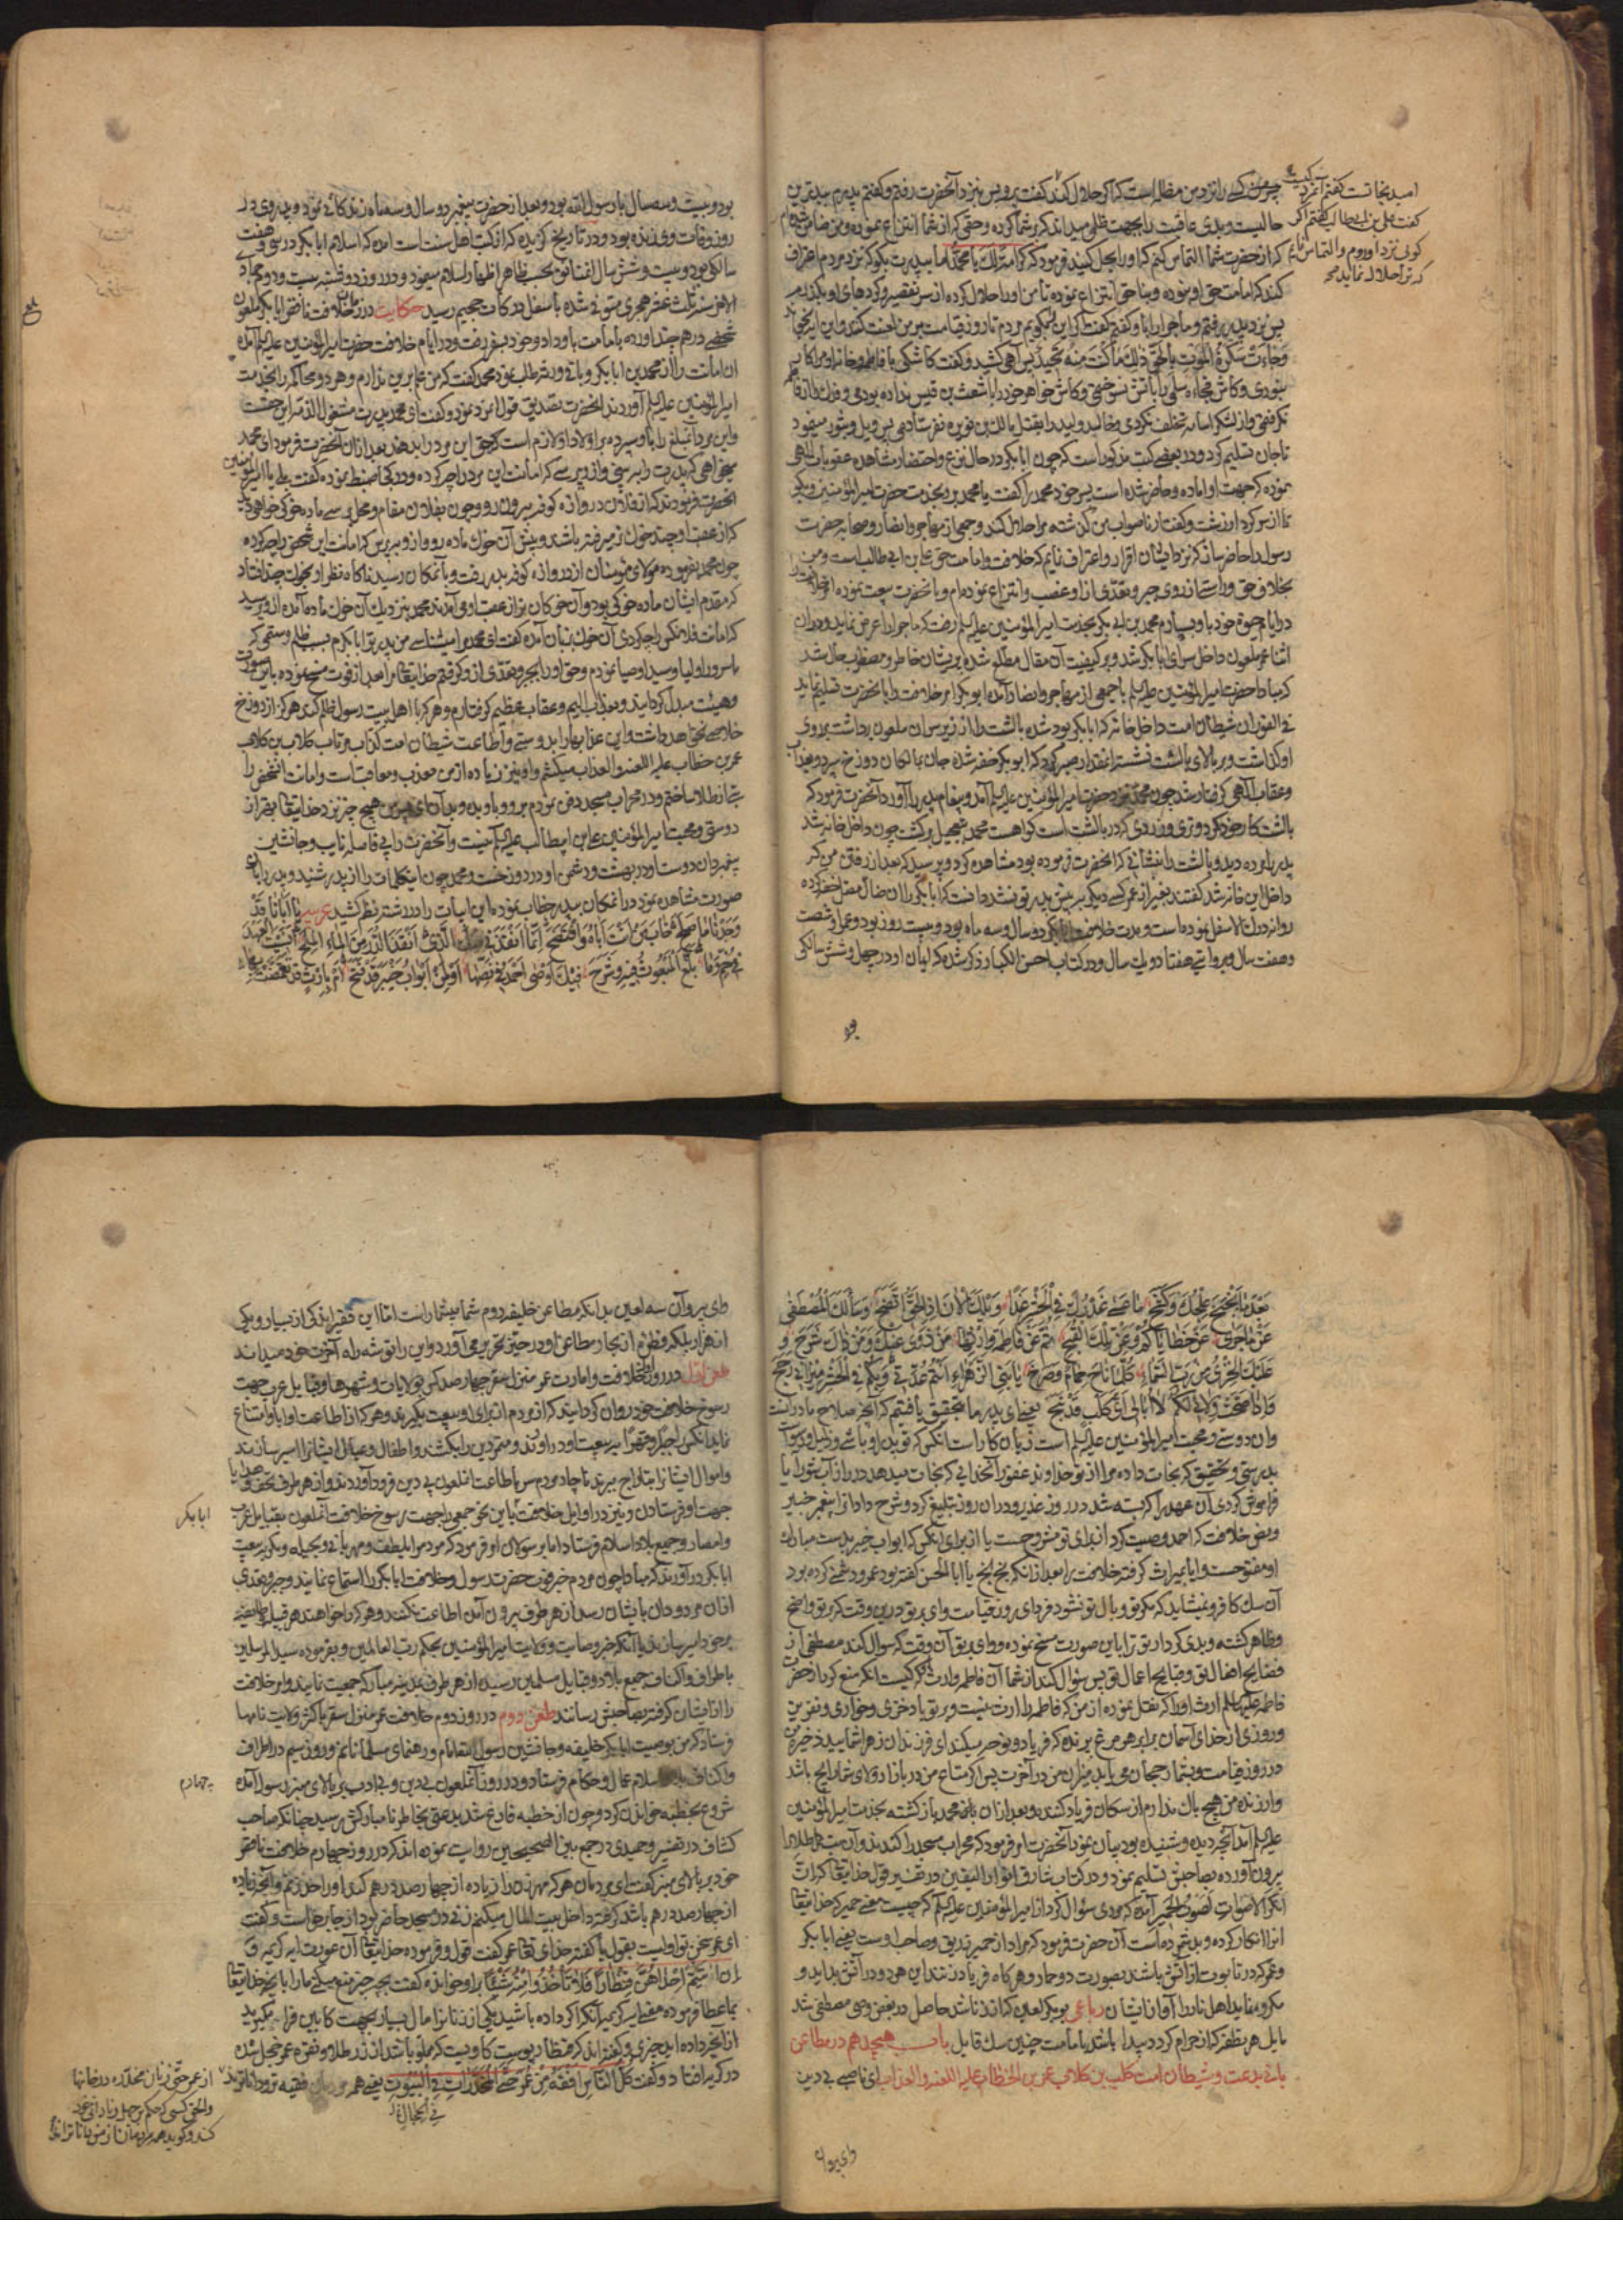 امید نجاتست گفتم آنمرد کیست
گفت علی بن ابیطالب گفتم اگر
گوئی نزد او روم و التماس نمایم
که ترا حلال نماید
چه من کسی را نزد من مظالم است که اگر حلال کند گفت برو پس بنزد آنحضرت رفتم و گفتم پدرم ببدترین
حالیست و بدی عاقبت را بجهت ظلمی میداند که بر شما کرده و حقی که از شما انتزاع نموده و من ضامن شده‌ام
که از حضرت شما التماس کنم که او را بحل کنید فرمود که کرامة لك یا محمد اما بپدرت بگو که نزد مردم اعتراف
کند که امامت حق او نبوده و بناحق انتزاع نموده تا من او را حلال کرده از سر تقصیر و کردهای او بگذرم
پس نزد پدر رفتم و ماجرا را باو گفتم گفت اگر این بگویم مردم تا روز قیامت بر من لعنت کنند و این آیه بخواند
وَجَاءَتْ سَكْرَةُ الْمَوْتِ بِالْحَقِّ ذٰلِكَ مَا كُنْتَ مِنْهُ تَحِيدُ پس آهی کشید و گفت کاشکی با فاطمه و خانه او مرا کار
نبودی و کاش فجاءه سلمی را بآتش نسوختمی و کاش خواهر خود را باشعث بن قیس نداده بودمی و فدك را از فاطمه
نگرفتمی و از لشکر اسامه تخلف نکردمی و خالد ولید را بقتل مالك بن نویره نفرستادمی پس ویل و ثبور میفرمود
تا جان تسلیم کرد و در بعضی کتب مذکور است که چون ابابکر در حال نزع و احتضار مشاهده عقوبات الهی
نموده که جهت او آماده و حاضر شده است پسر خود محمد را گفت یا محمد برو بخدمت حضرت امیر المؤمنین و بگو
تا از سر کردار زشت و گفتار ناصواب من گذشته مرا حلال کند و جمعی از مهاجر و انصار و صحابه حضرت
رسول را حاضر ساز که نزد ایشان اقرار و اعتراف نمایم که خلافت و امامت حق علی بن ابی طالب است و من
بخلاف حق و راستی از روی جبر و تعدی از او غصب و انتزاع نموده‌ام و با آنحضرت بیعت نموده
در ایام حیوة خود باو بسپارم محمد بن ابی بکر بخدمت امیر المؤمنین علیه السلم رفت که ماجرا را عرض نماید و در آن
اثنا عمر ملعون داخل سرای ابابکر شد و بر کیفیت آن مقال مطلع شده پریشان خاطر و مضطرب حال شد
که مبادا حضرت امیر المؤمنین علیه السلم با جمعی از مهاجر و انصار آمده ابو بکر امر خلافت را بآنحضرت تسلیم نماید
فی الفور آن شیطان امت داخل خانه که ابابکر بود شده بالشت را از زیر سر آن ملعون برداشت بر روی
او گذاشت و بر بالای بالشت نشست انقدر صبر کرد که ابو بکر خفه شده جان بمالکان دوزخ سپرد و بعذاب
و عقاب الهی گرفتار شد چون محمد نزد حضرت امیر المؤمنین علیه السلم آمد و پیغام پدر را آورد آنحضرت فرمود که
بالشت کار خود کرد و تری و زردی که در بالشت است گواهست محمد بتعجیل برگشت چون داخل خانه شد
پدر را مرده دید و بالشت را نشانی که آنحضرت فرموده بود مشاهده کرد و پرسید که بعد از رفتن من که
داخل این خانه شد گفتند بغیر از عمر کسی دیگر پیش پدر تو نشد دانست که ابابکر را آن ضال مضل خفه کرده
روانه درك الاسفل نموده است و مدت خلافت ابابکر دو سال و سه ماه بود و بیست روز بود و عمر او شصت
و هفت سال و بروایتی هفتاد و یك سال و در کتاب احسن الکبار ذکر شده که ایمان او در چهل و شش سالگی
بود
بود و بیست و سه سال با رسول الله بود و بعد از حضرت پیغمبر دو سال و سه ماه زندگانی نمود و پدر وی در
روز وفات وی زنده بود و در تاریخ گزیده که از کتب اهل سنت است آمده که اسلام ابابکر در سی و هفت
سالگی بود و بیست و شش سال اتفاق بحسب ظاهر اظهار اسلام مینمود و در روز دوشنبه بیست و دوم جمادی
الآخر سنه ثلث عشر هجری متوفی شده باسفل درکات جحیم رسید حکایت در زمان خلافت ناقص ابابکر ملعون
شخصی درهم چند آورده بامانت باو داد و خود بسفر رفت و در ایام خلافت حضرت امیر المؤمنین علیه السلم آمده
آن امانت را از محمد بن ابابکر و باقی ورثه طلب نمود محمد گفت که من خبر این ندارم و هر دو محاکمه را بخدمت
امیر المؤمنین علیه السلم آوردند آنحضرت تصدیق قول آنمرد نمود و گفت ای محمد پدرت مشغول الذمه این حقست
و این مرد آن مبلغ را باو سپرده بر اولاد او لازم است که حق این مرد را بدهند بعد از آن آنحضرت فرمود ای محمد
میخواهی که پدرت را ببینی و از و پرسی که امانت این مرد را چه کرده و در کجا ضبط نموده گفت بلی یا امیر المؤمنین
آنحضرت فرمودند که از فلان دروازه کوفه بیرون رو و چون بفلان مقام و محل برسی ماده خوکی خواهی دید
که از عقب او چند خوك نر میرفته باشند و پیش آن خوك ماده رو و از و بپرس که امانت این شخص را چه کرده
چون محمد بفرموده مولای مؤمنان از دروازه کوفه بدر رفت و بآنمکان رسید ناگاه نظر او بخوك چند افتاد
که مقدم ایشان ماده خوکی بود و آن خوکان نر از عقب او می‌آمدند محمد بنزدیك آن خوك ماده آمده از و پرسید
که امانت فلانکس را چه کردی آن خوك بزبان آمده گفت ای محمد مرا میشناسی من پدر تو ابابکرم بسبب ظلم و ستمی که
بسرور اولیا و سید اوصیا نمودم و حق او را بجبر و تعدی از و گرفتم خدایتعالی مرا بعد از فوت مسخ نموده باین صورت
و هیئت مبدل گردانید و بعذاب الیم و عقاب عظیم گرفتارم و هر که با اهل بیت رسول ظلم کند هرگز از دوزخ
خلاصی نخواهد داشت و این عذابها را بدوستی و اطاعت شیطان امت کذاب مرتاب کلاب بن کلاب
عمر بن خطاب علیه اللعنة و العذاب میکشم و او نیز زیاده از من معذب و معاقب است و امانت آنشخص را
شیئی از طلا ساختم و در محراب مسجد دفن نمودم برو و باو بده و بدان ای پسر من هیچ چیز نزد خدایتعالی بهتر از
دوستی و محبت امیر المؤمنین علی بن ابیطالب علیه السلم نیست و آنحضرت را بی فاصله نایب و جانشین
پیغمبر دان دوست او در بهشت و دشمن او در دوزخست و محمد چون این کلمات را از پدر شنید و پدر را بآن
صورت مشاهده نمود در آنمکان بپدر خطاب نموده این ابیات را در رشته نظم کشید عربیه یا ابانا قد
وَجَدْنَا مَا صَلَحَ خَابَ مَنْ أَنْتَ أَبَاهُ وَافْتَضَحَ إِنَّمَا أَنْقَذَنِي مِنْكَ الَّذِي أَنْقَذَ الدُّرَّ مِنَ الْمَاءِ الْمِلْحِ أَنَسِيتَ الْعَهْدَ
فِي خُمٍّ وَمَا بَلَّغَ الْمَبْعُوثُ فِيهِ وَشَرَحَ فِيكَ أَوْصَى أَحْمَدُ فِي نَصِّهَا أَوْ لِمَنْ أَبْوَابُ خَيْبَرَ قَدْ فَتَحَ أَمْ بِإِرْثٍ قَدْ تَقَمَّصْتَ بِهَا
بَعْدَ مَا بَخْبَخَ عِجْلُكَ وَكَفَحَ مَا عَسَى عُذْرُكَ فِي الْحَشْرِ غَدًا وَيْلَكَ الْآنَ إِذِ الْحَقُّ اتَّضَحَ وَسَأَلَكَ الْمُصْطَفَى
عَمَّا جَرَى عَنْ خَطَايَاكُمْ وَعَنْ تِلْكَ الْقُبَحِ ثُمَّ عَنْ فَاطِمَةَ وَإِرْثِهَا مَنْ زَوَى عَنْكَ وَمَنْ ذَاكَ شَرَحَ وَ
عَلَيْكَ الْخِزْيُ مِنْ رَبِّ السَّمَاءِ كُلَّمَا نَاحَ حَمَامٌ وَصَدَحَ يَا بَنِي الزَّهْرَاءِ أَنْتُمْ عُدَّتِي وَبِكُمْ فِي الْحَشْرِ مِيزَانِي رَجَحَ
وَإِذَا صَحَّ وِلَائِي لَكُمْ لَا أُبَالِي أَيُّ كَلْبٍ قَدْ نَبَحَ یعنی ای پدر ما بتحقیق یافتیم که آنچه صلاح ما در آنست
و آن دوستی و محبت امیر المؤمنین علیه السلم است زیان کار است آنکس که تو پدر او باشی و ذلیل و رسواست
بدرستی و تحقیق که نجات داده مرا از تو خداوند غفور آنخدایی که نجات میدهد در را از آب شور آیا
فراموش کردی آن عهد را که بسته شد در روز غدیر و در آن روز تبلیغ کرد و شرح داد آنرا پیغمبر خبیر
و بنص خلافت که احمد وصیت کرد آنرا برای تو مشروحست یا از برای آنکس که ابواب خیبر بدست مبارك
او مفتوحست و آیا بمیراث گرفته خلافت را بعد از آنکه بخ بخ یا ابا الحسن گفته بود عمر و دشمنی کرده بود
آن سك کافر و نمیشاید که مکر تو وبال تو نشود فردای روز قیامت وای بر تو در این وقت که بر تو واضح
و ظاهر گشته و بدی کردار تو ترا باین صورت مسخ نموده و وای بر تو آن وقت که سؤال کند مصطفی از
فضایح افعال تو و قبایح اعمال تو پس سؤال کند از شما آن فاطمه و ارث که کیست آنکه منع کرد از حضرت
فاطمه علیها السلم ارث او را که نقل نموده از من که فاطمه را ارث نیست و بر تو باد خزی و خواری و نفرین
و دوری از خدای آسمان برابر هر مرغ پرنده که فریاد و نوحه میکند ای فرزندان زهرا شمایید ذخیره من
در روز قیامت و بشما رجحان می‌یابد میزان من در آخرت پس اگر متاع من در بازار ولای شما رایج باشد
و ارزنده من هیچ باك ندارم از سکان فریاد کننده و بعد از آن محمد بازگشته بخدمت امیر المؤمنین
علیه السلم آمد آنچه دیده و شنیده بود بیان نمود آنحضرت امر فرمود که محراب مسجد را کندند و آن طلا را
بیرون آورده بصاحبش تسلیم نمود و در کتاب مشارق انوار الیقین در تفسیر قول خدایتعالی که إِنَّ
أَنْكَرَ الْأَصْوَاتِ لَصَوْتُ الْحَمِيرِ آمده که مردی سؤال کرد از امیر المؤمنین علیه السلم که چیست معنی حمیر که خدایتعالی
آنرا انکار کرده و بد شمرده است آن حضرت فرمود که مراد از حمیر زندیق و صاحب اوست یعنی ابابکر
و عمر که در تابوت از آتش باشند بصورت دو حمار و هر گاه فریاد زنند این هر دو در آتش بد آید و
مکروه نماید اهل نار را آواز ایشان رباعی بو بکر لعین که از خدا ناشد حاصل در بغض وصی مصطفی شد
مایل هر نطفه که از حرام گردد پیدا باشد بامامت چنین سك قایل باب هیجدهم در مطاعن
بانی بدعت و شیطان امت کلب بن کلاب عمر بن الخطاب علیه اللعنة و العذاب ای ناصبی بی دین
وای پیروان
وای پیروان سه لعین بدانکه مطاعن خلیفه دوم شما بیشمار است اما این فقیر اندکی از بسیار و یکی
از هزار بلکه قطره از بحار مطاعن او در حیز تحریر می‌آورد و این را توشه راه آخرت خود میداند
طعن اول در روز اول خلافت و امارت عمر منزل سقر چهار صد کس بولایات و شهرها و قبایل عرب جهت
رسوخ خلافت خود روان گردانید که از مردم از برای او بیعت بگیرند و هر که از اطاعت او ابا و امتناع
نماید آنکس را جبرا و قهرا به بیعت او در آورند و متمردین را بکشند و اطفال و عیال ایشانرا اسیر سازند
و اموال ایشانرا بتاراج ببرند ناچار مردم سر باطاعت آنملعون بی دین فرود آوردند و از هر طرف تحف و هدایا
جهت او فرستادند و نیز در اوایل خلافت ابابکر باین نحو جمعی را جهت رسوخ خلافت آنملعون بقبایل عرب
و امصار و جمیع بلاد اسلام فرستاد اما برسولان او فرمود که مردم را بلطف و مهربانی و بحیله و مکر به بیعت
ابابکر در آورند که مبادا چون مردم خبر فوت حضرت رسول و خلافت ابابکر را استماع نمایند و جبر و تعدی
از آن مردودان بایشان رسد از هر طرف بیرون آمده اطاعت نکنند و هر که را خواهند هر قبیله خلیفه
بر خود امیر سازند با آنکه خبر وصایت و ولایت امیر المؤمنین بحکم رب العالمین و بفرموده سید المرسلین
باطراف و اکناف جمیع بلاد و قبایل مسلمین رسیده از هر طرف بمدینه مبارکه جمعیت نمایند و امر خلافت
را از ایشان گرفته بصاحبش رسانند طعن دوم در روز دوم خلافت عمر منزل سقر باکثر ولایت نامها
فرستاد که من بوصیت ابابکر خلیفه و جانشین رسول الله‌ام و رهنمای مسلمانانم و روز سیم در اطراف
و اکناف بلاد اسلام عمال و حکام فرستاد و در روز آنملعون بی دین و بی ادب بر بالای منبر رسول آمده
شروع بخطبه خواندن کرد و چون از خطبه فارغ شد بدعتی بخاطر نامبارکش رسید چنانکه صاحب
کشاف در تفسیر و حمیدی در جمع بین الصحیحین روایت نموده‌اند که در روز چهارم خلافت ناقص
خود بر بالای منبر گفت ای مردمان هر که مهر زن را زیاده از چهارصد درهم کند او را حد زنم و آنچه زیاده
از چهارصد درهم باشد گرفته داخل بیت المال میکنم زنی در مسجد حاضر بود از جا برخاست و گفت
ای عمر سخن تو اولیست بقبول یا گفته خدای تعالی عمر گفت قول و فرموده خدایتعالی آن عورت آیه کریمه وَ
إِنْ آتَيْتُمْ إِحْدَاهُنَّ قِنْطَارًا فَلَا تَأْخُذُوا مِنْهُ شَيْئًا بر او خوانده گفت بچه چیز منع میکنی ما را بآنچه خدایتعالی
بما عطا فرموده معنی آیه کریمه آنکه اگر داده باشید یکی از زنانرا مال بسیار بجهت کابین فرا مگیرید
از آنچه داده‌اید چیزی و گفته‌اند که قنطار پوست گاویست که مملو باشد از زر طلا و نقره عمر خجل شده
در گریه افتاد و گفت كُلُّ النَّاسِ أَفْقَهُ مِنْ عُمَرَ حَتَّى الْمُخَدَّرَاتِ فِي الْبُيُوتِ یعنی همه مردمان فقیه تر و داناترند
فِي الْحِجَالِ
ابابکر
چهارم
از عمر حتی زنان مخدره در خانها
والحق کسی که حکم بر جهل و نادانی خود
کند و گوید همه مردمان از من داناترند